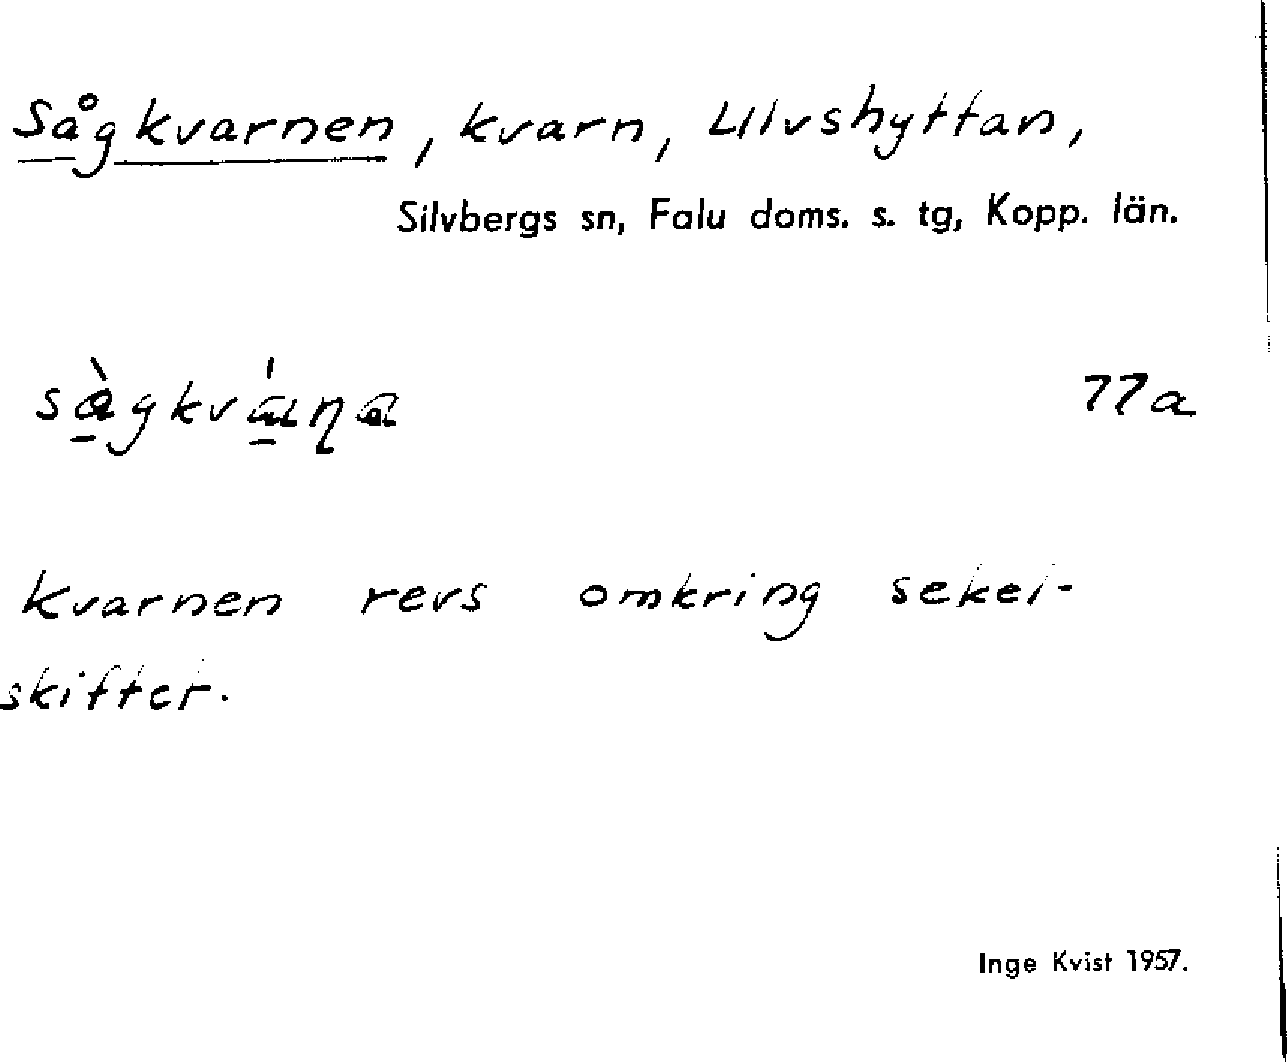 Sågkvarnen, kvarn, Ulvshyttan,
Silvbergs sn, Falu doms. s. tg, Kopp. län.
77a
kvarnen revs omkring sekel-
skiftet.
Inge Kvist 1957.